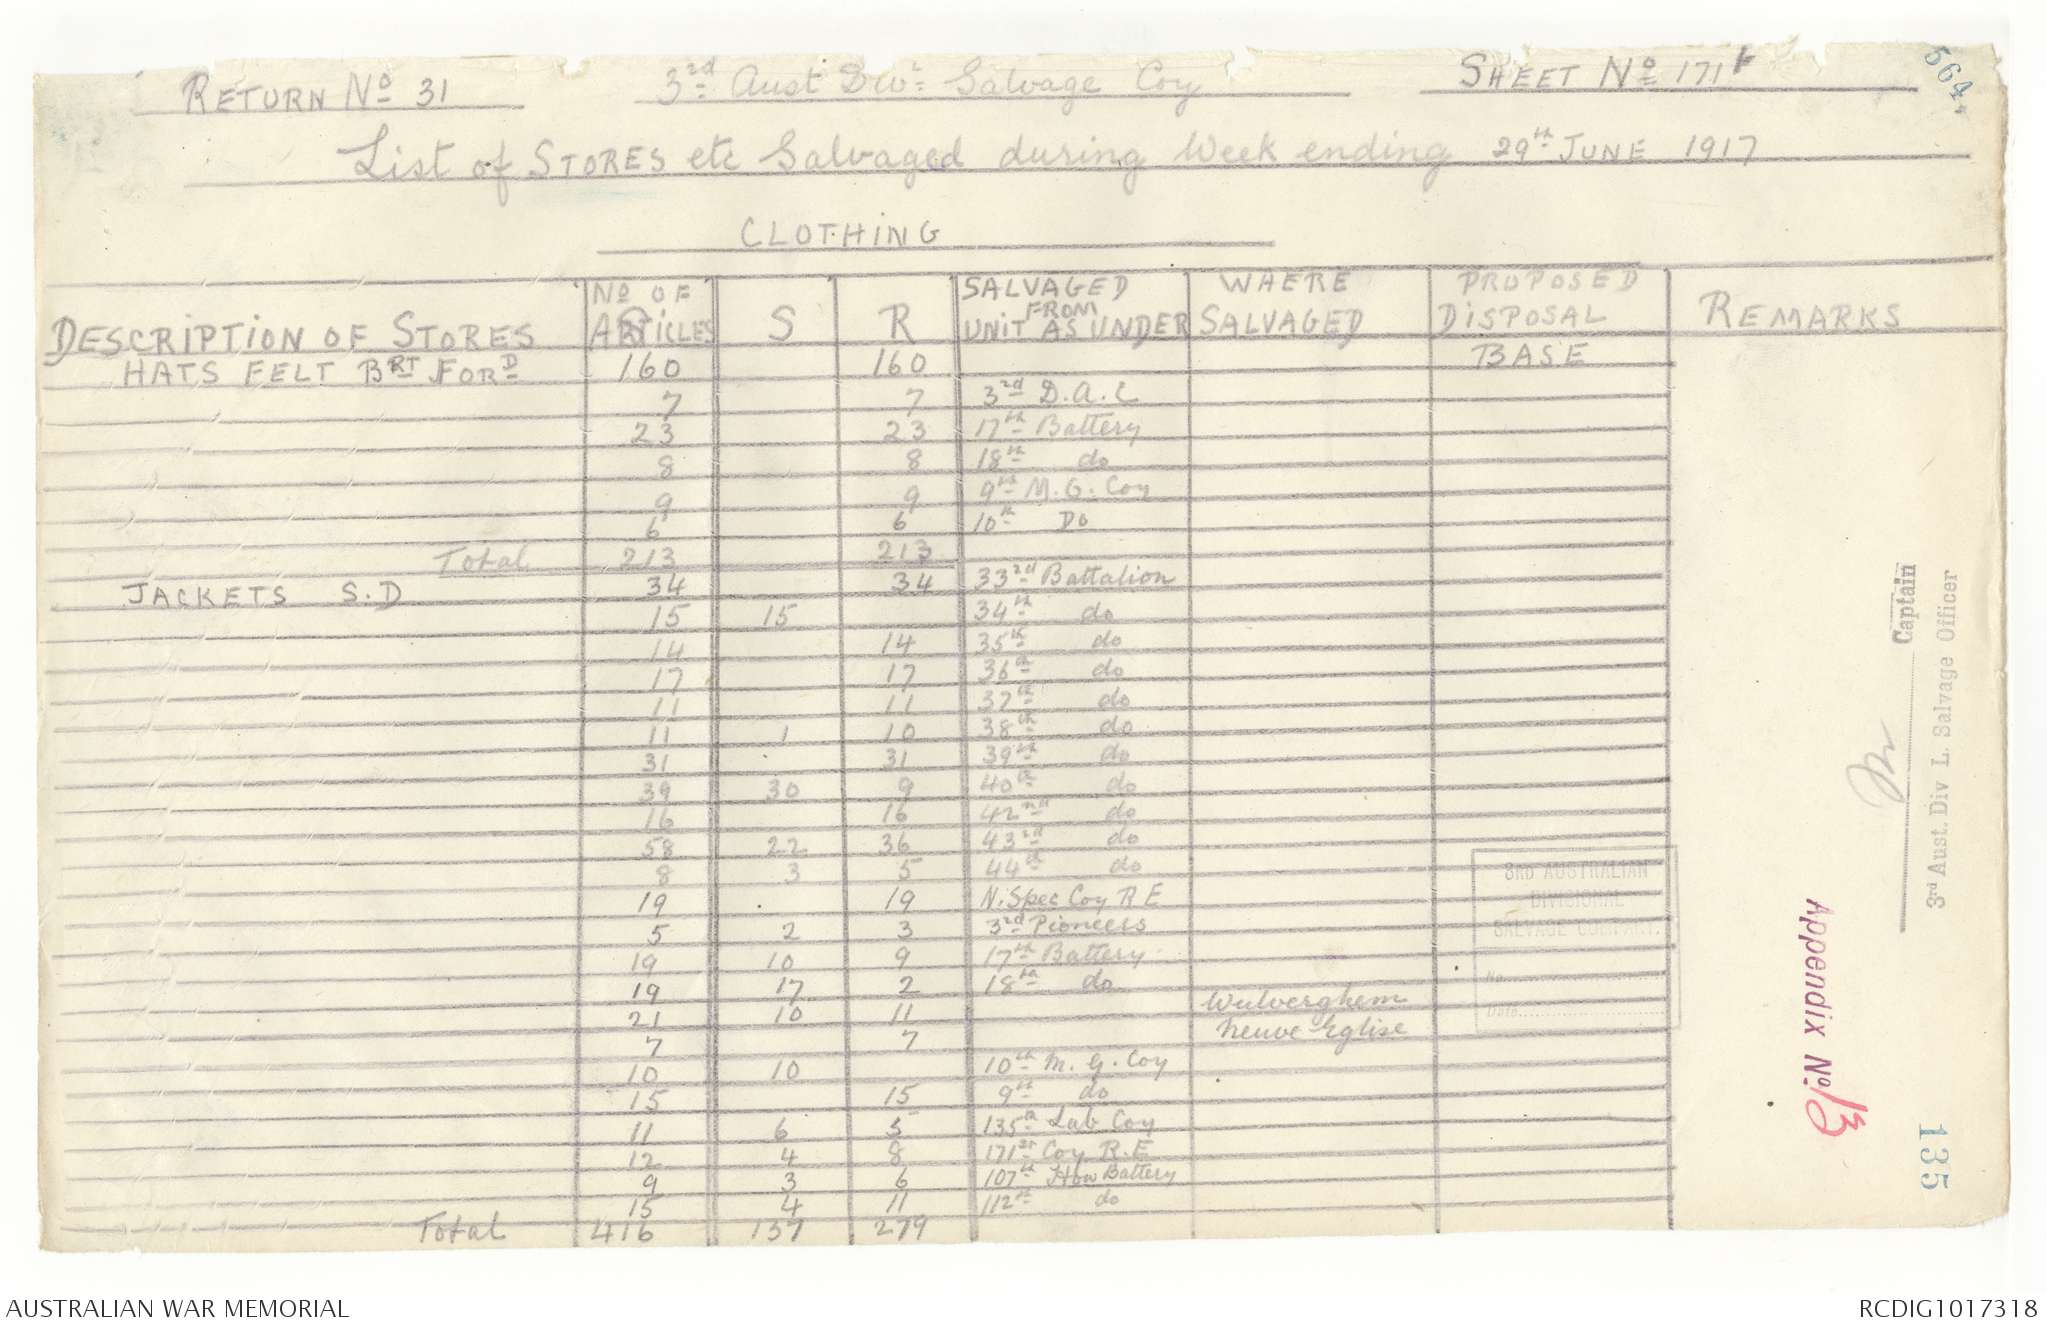 RETURN No 31 3rd Aust Divl Salvage Coy SHEET No 171F
564
List of STORES etc Salvaged during Week ending 29th JUNE 1917
CLOTHING
DESCRIPTION OF STORES No OF ARTICLES S R SALVAGED FROM UNIT AS UNDER WHERE SALVAGED PROPOSED DISPOSAL REMARKS
HATS FELT BRT FORD 160 160 BASE
7 7 3rd D.A.C
23 23 17th Battery
8 8 18th do
9 9 9th M.G. Coy
6 6 10th Do
Total 213 213
JACKETS S.D 34 34 33rd Battalion
15 15 34th do
14 14 35th do
17 17 36th do
11 11 37th do
11 1 10 38th do
31 31 39th do
39 30 9 40th do
16 16 42nd do
58 22 36 43rd do
8 3 5 44th do
19 19 N. Spec Coy R E
5 2 3 3rd Pioneers
19 10 9 17th Battery
19 17 2 18th do
21 10 11 Wulverghem
7 7 Neuve Eglise
10 10 10th M.G. Coy
15 15 9th do
11 6 5 135th Lab Coy
12 4 8 171st Coy R.E
9 3 6 107th How Battery
15 4 11 112th do
Total 416 137 279
3RD AUSTRALIAN
DIVISIONAL
SALVAGE COMPANY.
No.
Date
Captain
3rd Aust. Div L. Salvage Officer
Appendix No. 13
135
AUSTRALIAN WAR MEMORIAL RCDIG1017318